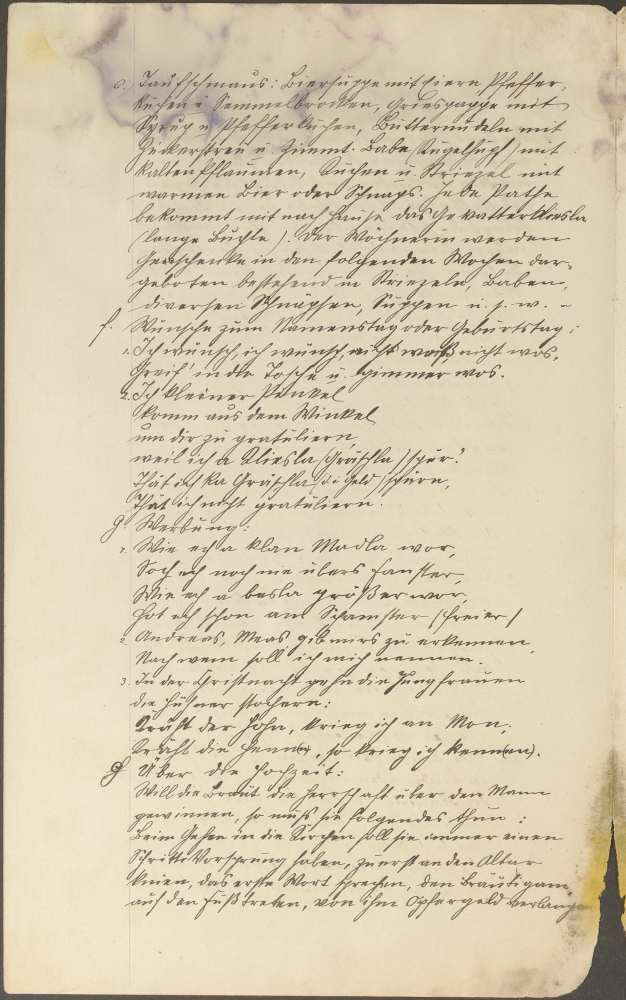 e. Taufschmaus: Biersuppe mit Eiern Pfeffer,
kuchen u Semmelbrocken, Griespappe mit
Syrup u Pfefferkuchen, Butternudeln mit
Zuckerstreu u Zimmt. Babe (Kugelhupf) mit
kalten Pflaumen, Kuchen u. Striezel mit
warmen Bier oder Schnaps. Jede Pathe
bekommt mit nach Hause das Gevatterkliesla
(lange Buchte). Der Wöchnerin werden
Geschenke in den folgenden Wochen dar-
geboten bestehend in Striezeln, Baben,
diversen Schnäpsen, Suppen u. s. w. –
f. Wünsche zum Namenstag oder Geburtstag:
1. Ich wünsch, ich wünsch, weiß nicht wos,
Greif' in die Tasche u. gimmer wos.
2. Ich kleiner Pinkel
komm aus dem Winkel
um dir zu gratuliern,
weil ich a Kliesla (Gröschla) spür!
Thät ich ka Gröschla (d. i. Geld) spürn,
Thät ich nicht gratuliern.
g. Werbung:
1. Wie ech a klan Madla wor,
Soch ech noch nie übers Fanster,
Wie ech a besla größer wor,
Hot ech schon an Schamster (Freier)
2. Andreas, Meas, gib mirs zu erkennen,
Nach wem soll ich mich nennen.
3. In der Christnacht gehn die Jungfrauen
die Hühner stochern:
Kräht der Hohn, krieg ich an Mon;
Kräht die Henn, so krieg ich kenn(en).
h. Über die Hochzeit:
Will die Braut die Herrschaft über den Mann
gewinnen, so muß sie folgendes thun:
Beim Gehen in die Kirchen soll sie immer einen
Schritt Vorsprung haben, zuerst an den Altar
knien, das erste Wort sprechen, den Bräutigam
auf den Fuß treten, von ihm Opfergeld verlange